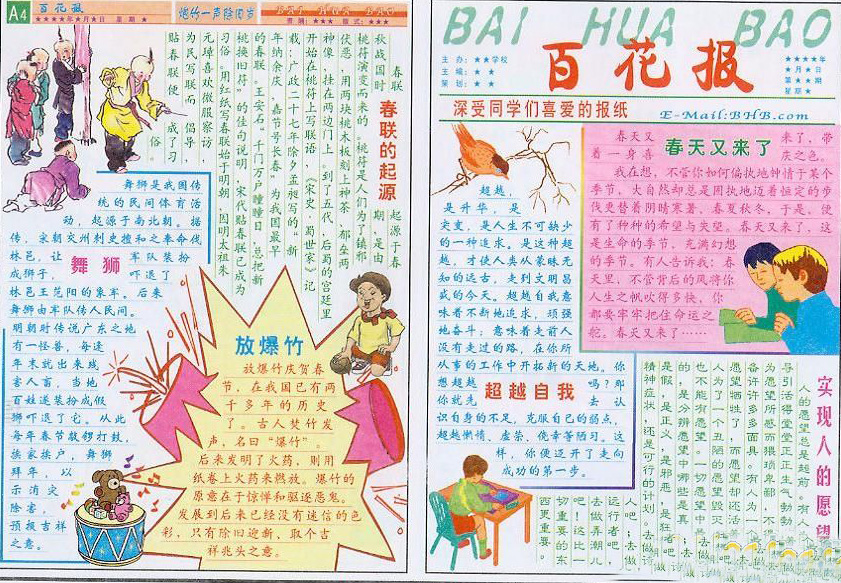 A4
百花报
★★★★年★月★日 星期★
炮竹一声除旧岁
BAI HUA BAO
责编:★★★ 版式:★★★
春联的起源
春联
起源于春
秋战国时
期,是由
桃符演变而来的。桃符是人们为了镇邪
伏恶,用两块桃木板刻上神荼、郁垒两
神像,挂在两边门上。到了五代,后蜀的宫廷里
开始在桃符上写联语
《宋史·蜀世家》记
载:广政二十七年除夕孟昶写的“新
年纳余庆,嘉节号长春”为我国最早
的春联。王安石“千门万户曈曈日,总把新
桃换旧符”的佳句说明,宋代贴春联已成为
习俗。用红纸写春联始于明朝,因明太祖朱
元璋喜欢微服察访,
为民写联而倡导,
贴春联便成了习
俗。
舞狮
舞狮是我国传
统的民间体育活
动,起源于南北朝。据
传,宋朝交州刺史檀和之奉命伐
林邑,让军队装扮
成狮子,吓退了
林邑王范阳的象军。后来
舞狮由军队传人民间。
明朝时传说广东之地
有一怪兽,每逢
年末就出来残
害人畜,当地
百姓遂装扮成假
狮吓退了它。从此
每年春节敲锣打鼓,
挨家挨户,舞狮
拜年,以
示消灾
除害,
预报吉祥
之意。
放爆竹
放爆竹庆贺春
节,在我国已有两
千多年的历史
了。古人焚竹发
声,名曰“爆竹”。
后来发明了火药,则用
纸卷上火药来燃放。爆竹的
原意在于惊惮和驱逐恶鬼。
发展到后来已经没有迷信的色
彩,只有除旧迎新、取个吉
祥兆头之意。
BAI HUA BAO
主办:★★学校
主编:★★
策划:★★
百花报
★★★★年
★月★日
第★★期
星期★
深受同学们喜爱的报纸
E-Mail:BHB.com
春天又来了
春天又来了,带
着一身喜庆之色。
我在想,不管你如何偏执地钟情于某个
季节,大自然却总是固执地迈着恒定的步
伐更替着阴晴寒暑、春夏秋冬,于是,便
有了种种的希望与失望。春天又来了,这
是生命的季节,充满幻想
的季节。有人告诉我:春
天里,不管背后的风将你
人生之帆吹得多快,你
都要牢牢把住命运之
舵。春天又来了……
超越自我
超越,
是升华,是
突变,是人生不可缺少
的一种追求。是这种超
越,才使人类从蒙昧无
知的远古,走到文明昌
盛的今天。超越自我意
味着不断地追求,顽强
地奋斗;意味着走前人
没有走过的路,在你所
从事的工作中开拓新的天地。你
想超越吗?那
你就先去认
识自身的不足,克服自己的弱点,
超越懒惰、虚荣、侥幸等陋习。这
样,你便迈开了走向
成功的第一步。
实现人的愿望
人的愿望总是超前。有人
导引活得堂堂正正生气勃勃,
为愿望所惑而猥琐卑鄙,不
备许许多多面具。有人为一
愿望牺牲了,而愿望却还活
为了一个丑陋的愿望毁灭
也不能有愿望。一切愿望中
的,是分辨愿望中哪些是真
是假,是正义,是邪恶,是狂者
精神症状,还是可行的计划。去做
人吧;去做
远行者吧,
去做弄潮儿
吧!这比一
切重要的东
西更重要。